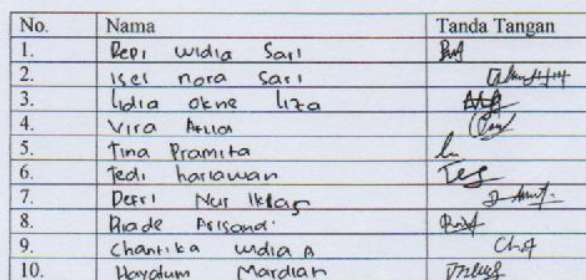 No. Nama Tanda Tangan
1. Repi widia Sari
2. Isel nora Sari
3. lidia okne liza
4. Vira
5. Tina Pramita
6. Tedi hariawan
7. Defri Nur Iklas
8. Riade Arisandi
9. Chantika widia
10. Hayatum Mardiah